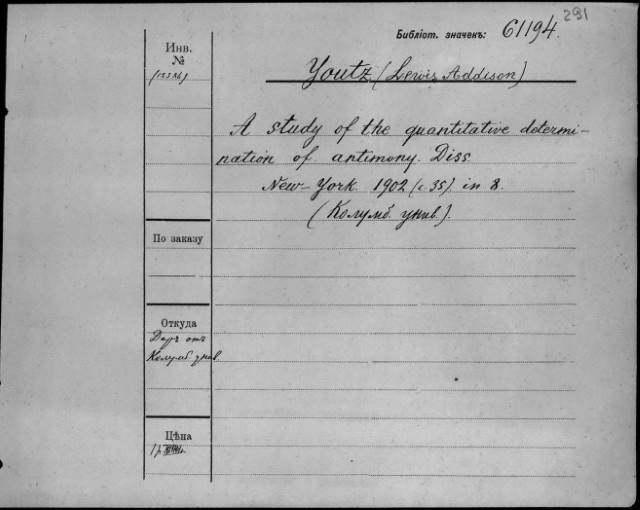 291
Библіот. значекъ: 61194.
Инв.
№
Youtz, (Lewis Addison)
A study of the quantitative determi-
nation of antimony. Diss.
New-York. 1902 (с. 35). in 8.
(Колумб. унив.).
По заказу
Откуда
Даръ отъ
Колумб. унив.
Цѣна
1 р.